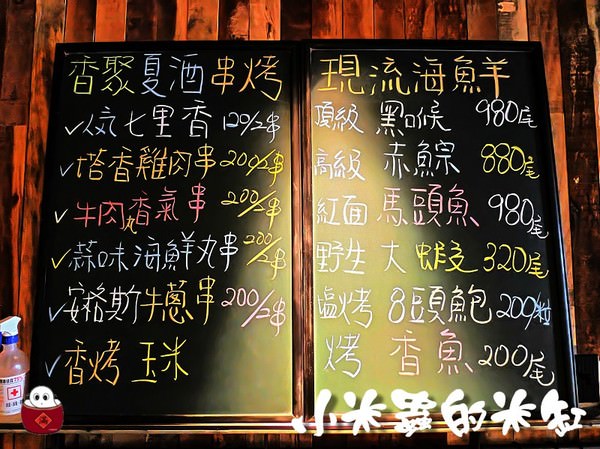 香聚夏酒串烤
✓人氣七里香 120/2串
✓塔香雞肉串 200/2串
✓牛肉丸香氣串 200/2串
✓蒜味海鮮丸串 200/2串
✓安格斯牛蔥串 200/2串
✓香烤玉米
現流海鮮
頂級 黑喉 980尾
高級 赤鯮 880尾
紅面 馬頭魚 980尾
野生大蝦 320尾
塩烤 8頭鮑 200/粒
烤 香魚 200尾
小米蟲的米缸